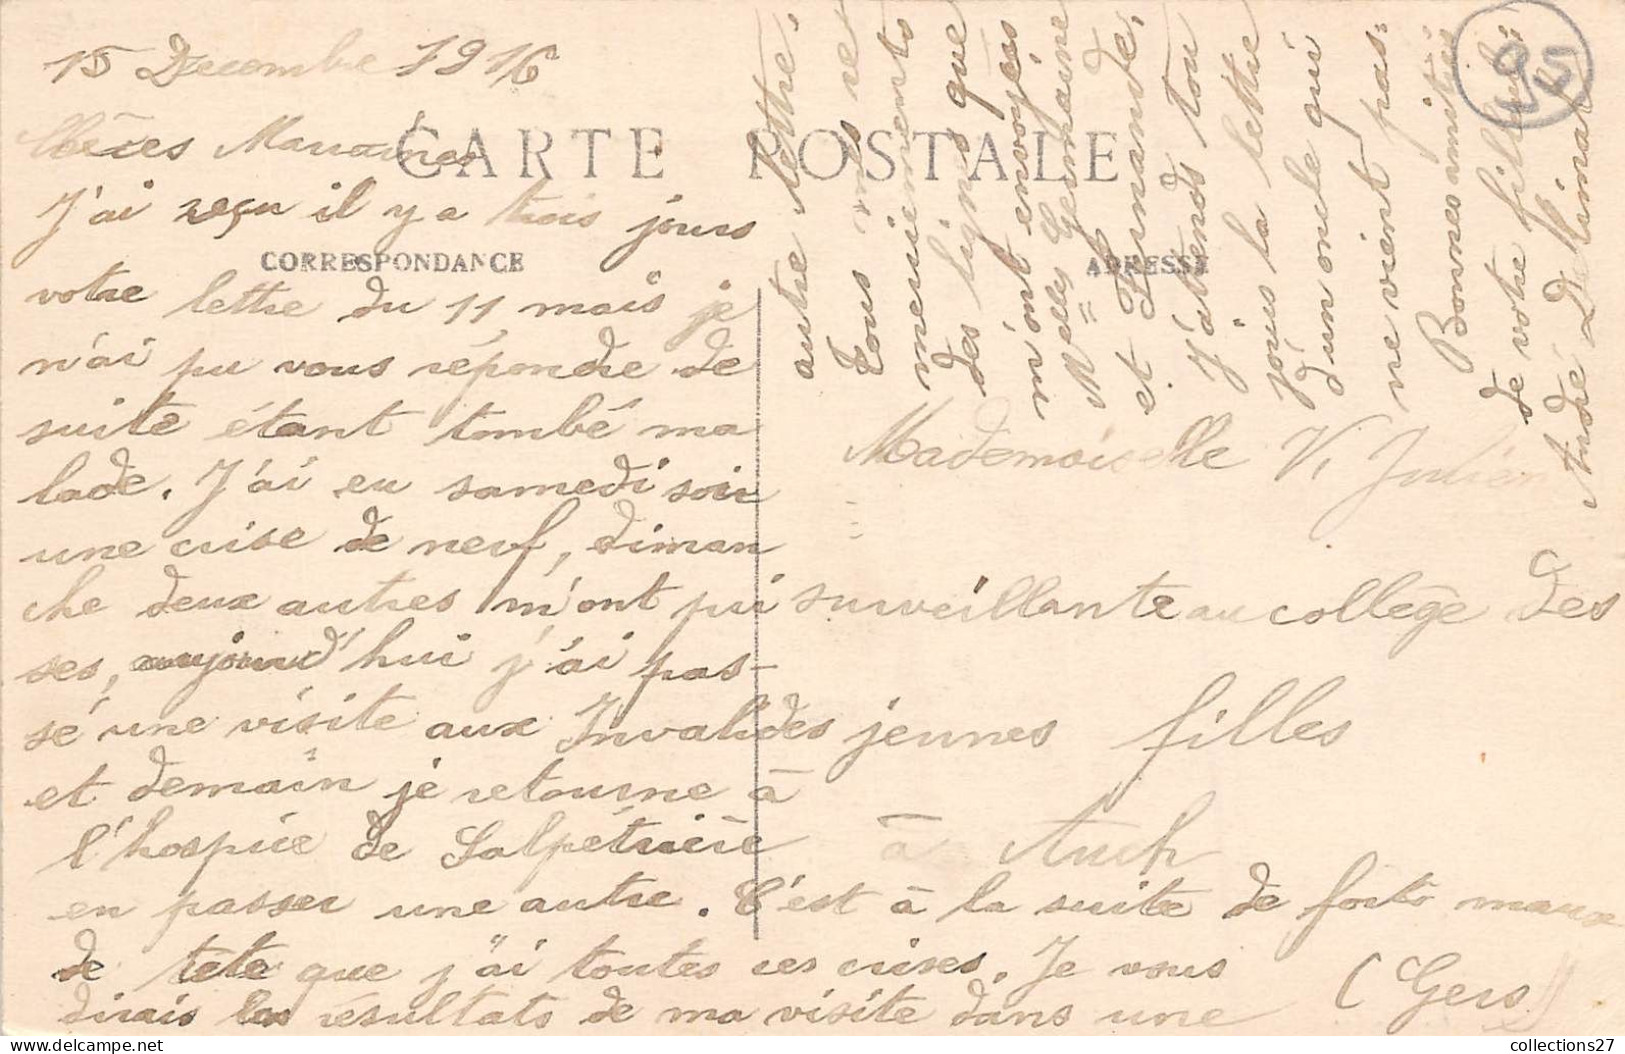 15 Decembre 1916
CARTE POSTALE
CORRESPONDANCE
ADRESSE
Chères Marraines
J'ai reçu il y a trois jours
votre lettre du 11 mais je
n'ai pu vous répondre de
suite étant tombé ma
lade. J'ai eu samedi soir
une crise de nerf, diman
che deux autres m'ont pri
ses, aujourd'hui j'ai pas-
sé une visite aux Invalides
et demain je retourne à
l'hospice de Salpétrière
en passer une autre. C'est à la suite de forts maux
de tete que j'ai toutes ces crises. Je vous
dirais les résultats de ma visite dans une
autre lettre.
Tous mes re
merciements
des lignes que
m'ont envoyées
Melles Germaine
et Fernande.
J'attends tou
jours la lettre
d'un oncle qui
ne vient pas.
Bonnes amitiés
de votre filleul
André Delimal
95
Mademoiselle V. Julien
surveillante au collège des
jeunes filles
à Auch
(Gers)
collections27